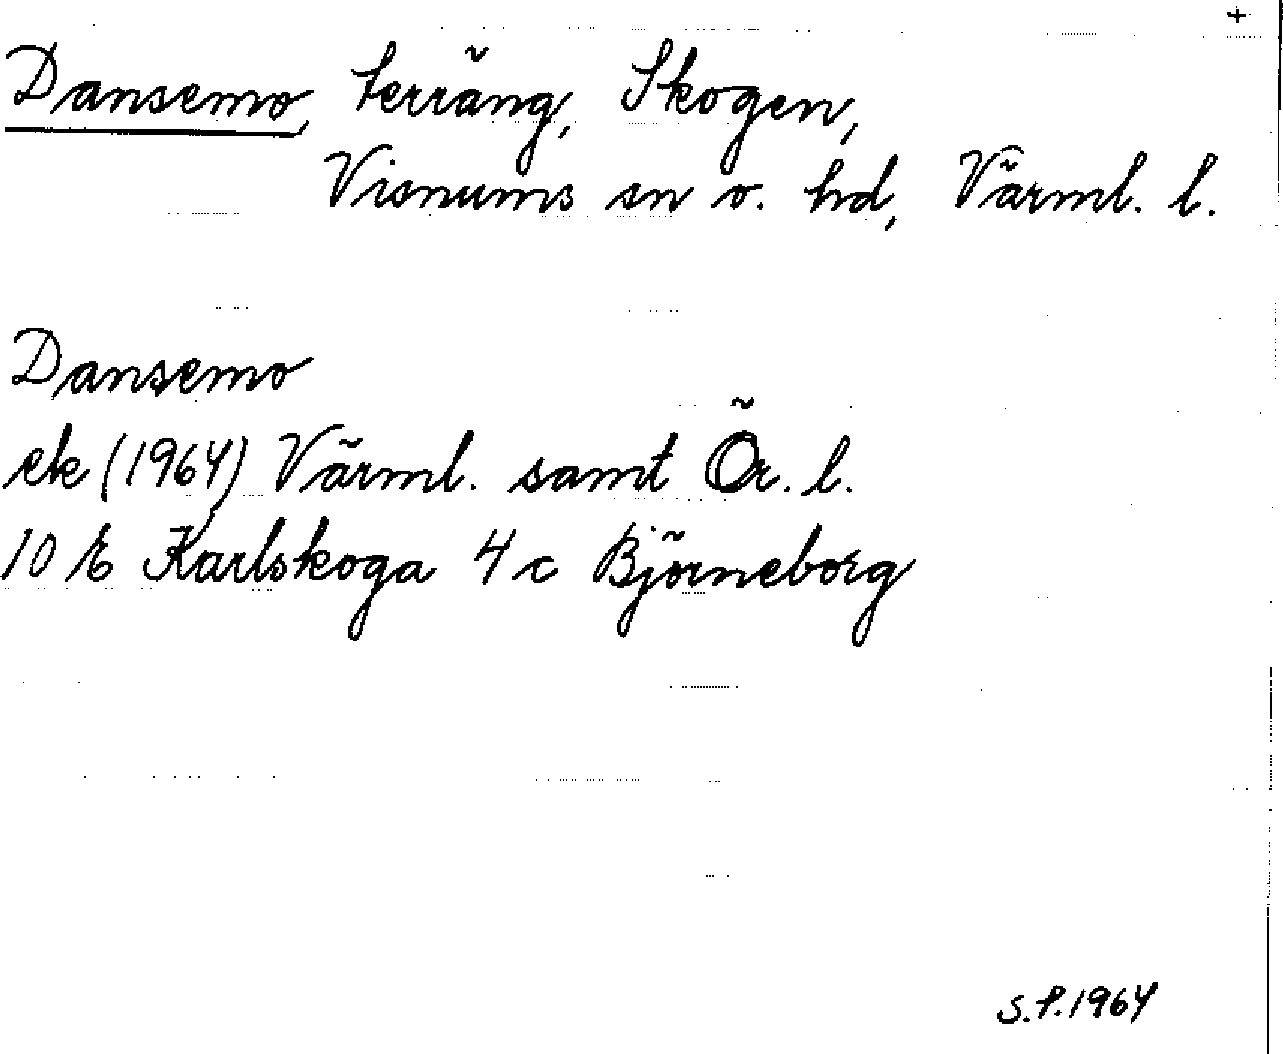 +
Dansemo, terräng, Skogen,
Visnums sn o. hd, Värml. l.
Dansemo
ek (1964) Värml. samt Ör. l.
10 E Karlskoga 4 c Björneborg
S.P.1964